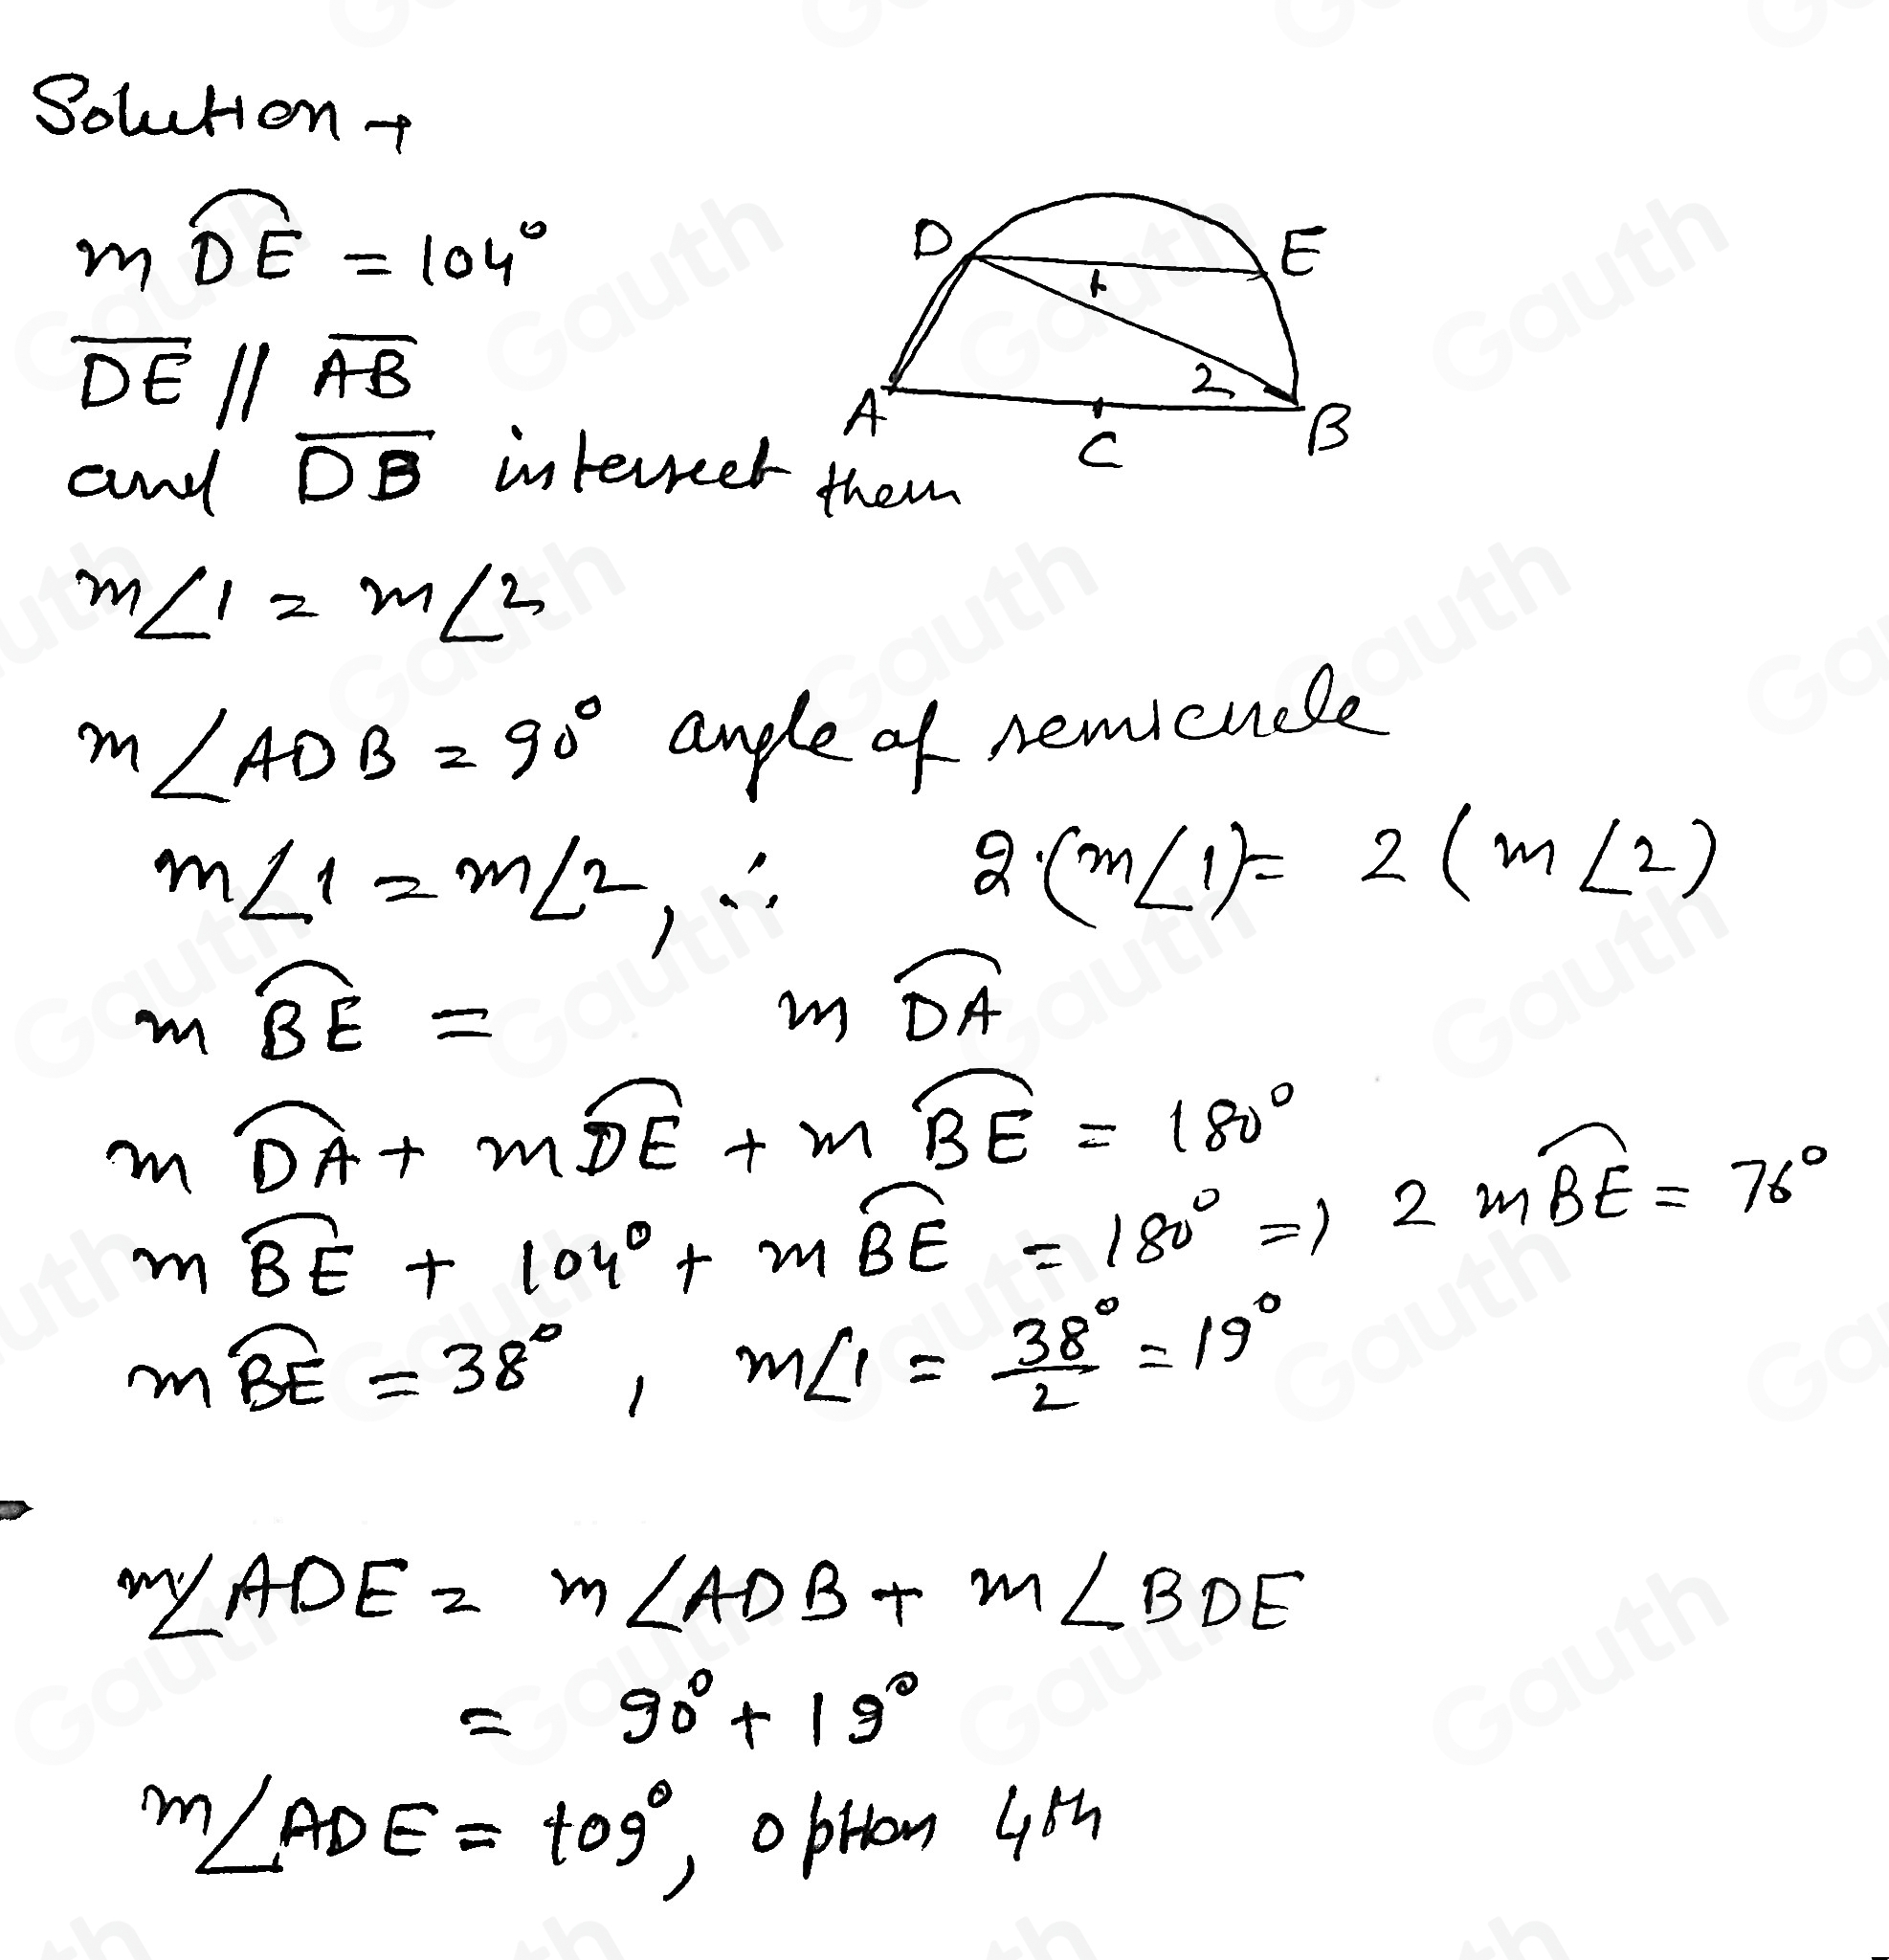 Solution →
m DE = 104°
DE || AB
and DB intersect them
D E
1
2
A C B
m∠1 = m∠2
m∠ADB = 90° angle of semicircle
m∠1 = m∠2, ∴ 2(m∠1) = 2(m∠2)
m BE = m DA
m DA + m DE + m BE = 180°
m BE + 104° + m BE = 180° => 2 m BE = 76°
m BE = 38°, m∠1 = 38°/2 = 19°
m∠ADE = m∠ADB + m∠BDE
= 90° + 19°
m∠ADE = 109°, option 4th
Gauth